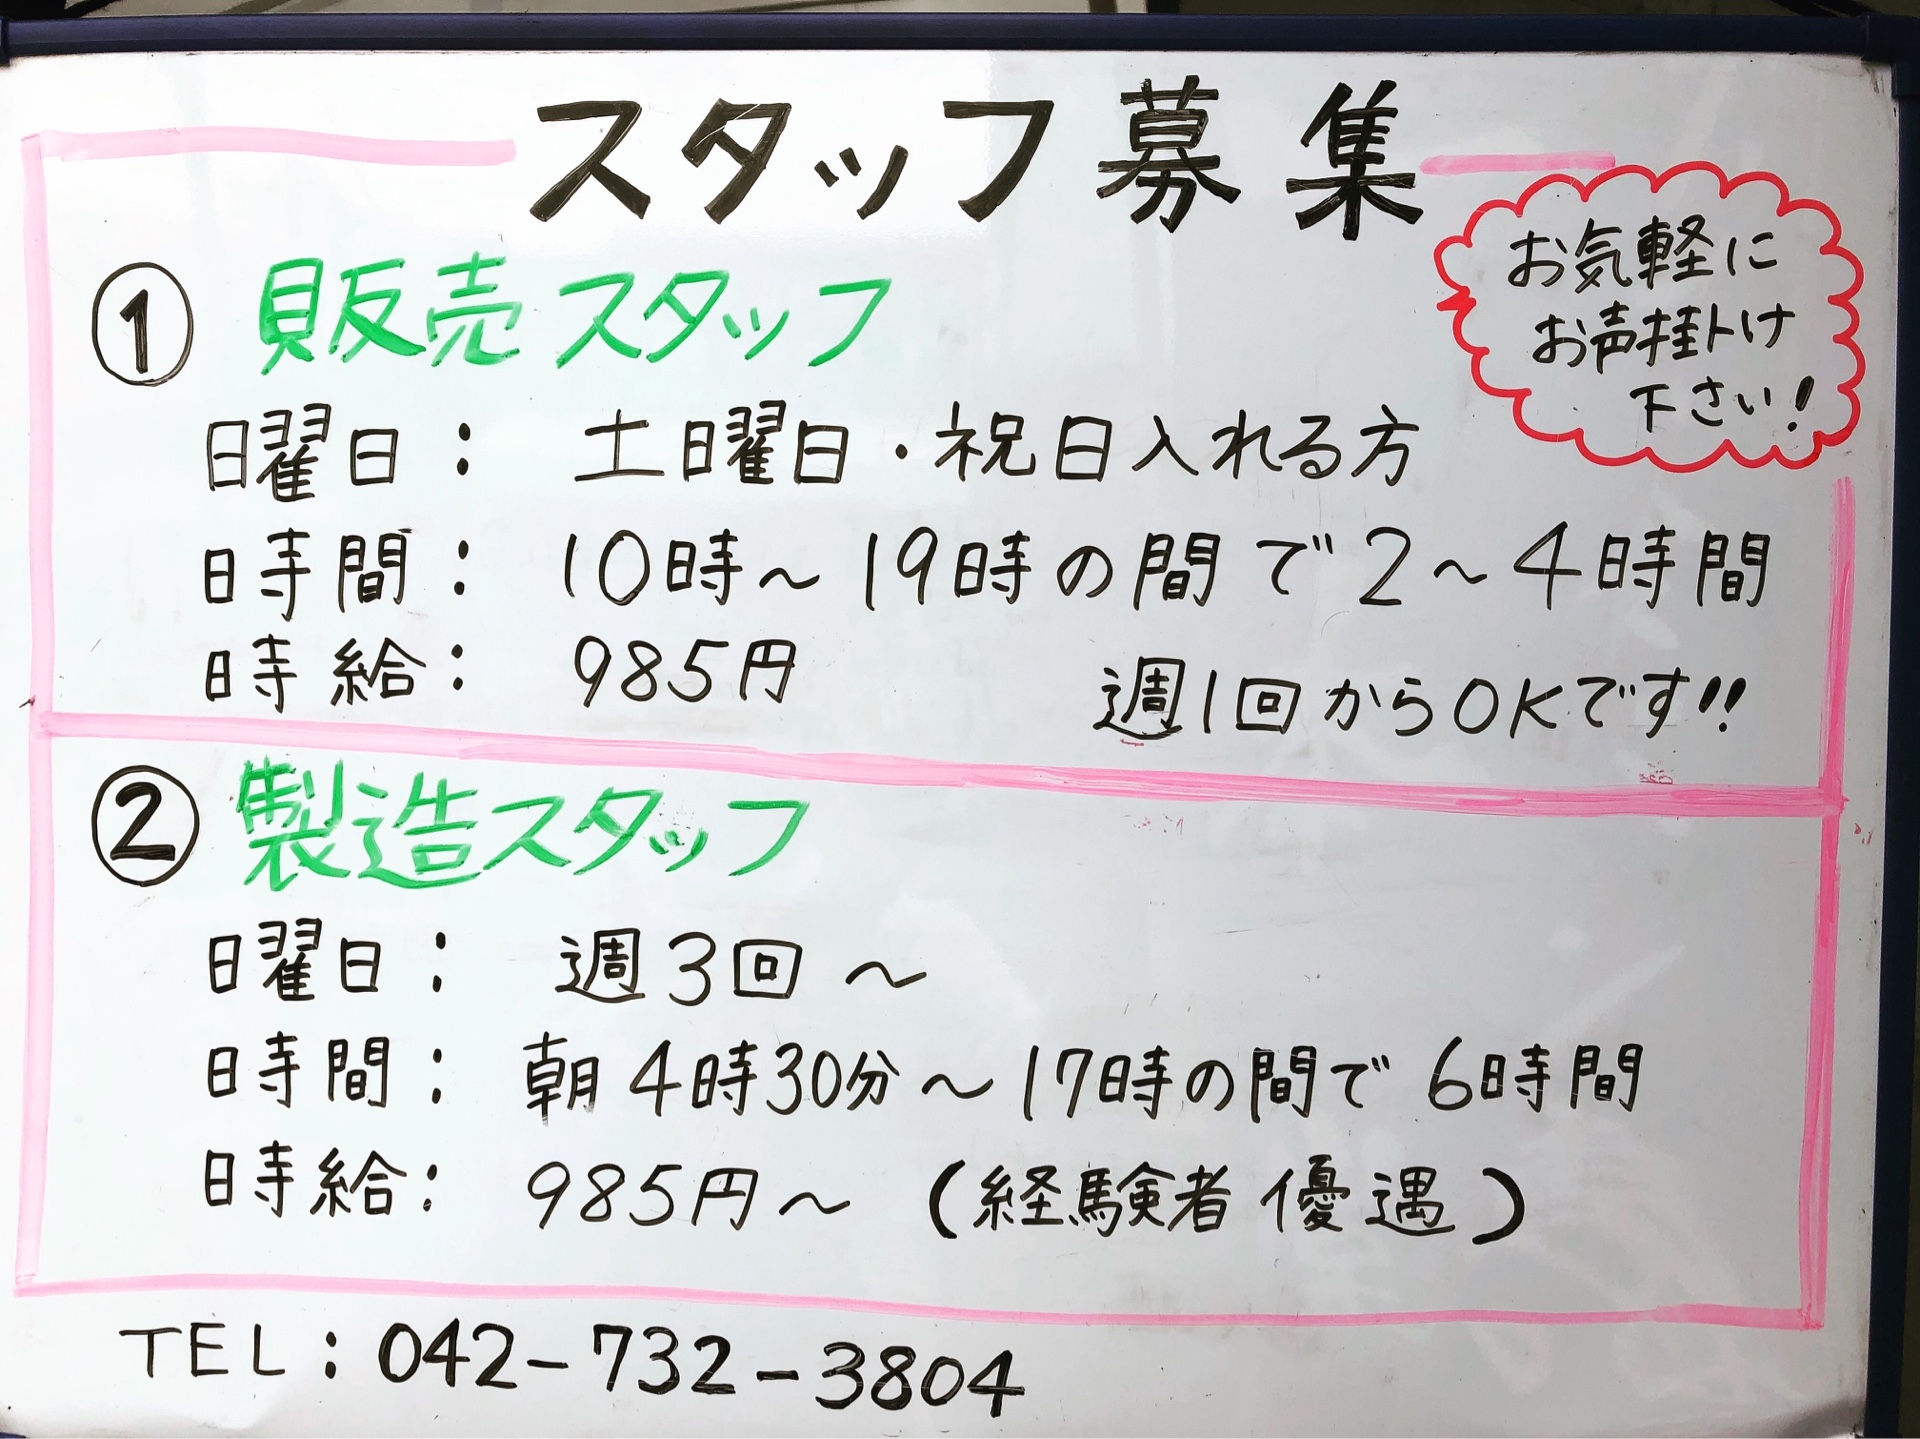 スタッフ募集
お気軽に
お声掛け
下さい!
① 販売スタッフ
曜日: 土曜日・祝日入れる方
時間: 10時〜19時の間で2〜4時間
時給: 985円 週1回からOKです!!
② 製造スタッフ
曜日: 週3回〜
時間: 朝4時30分〜17時の間で6時間
時給: 985円〜 (経験者優遇)
TEL: 042-732-3804